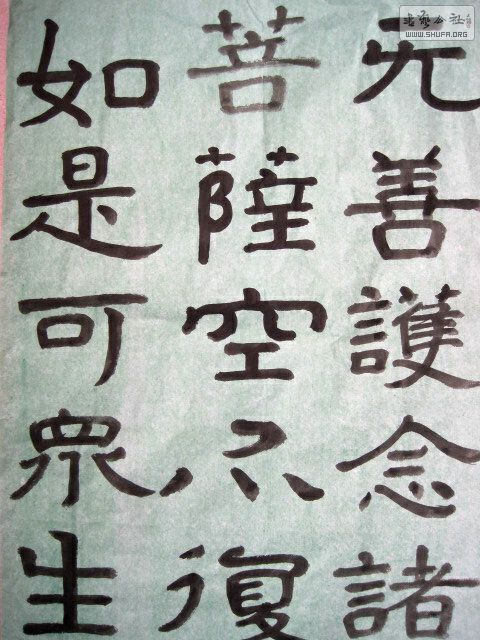 无善護念諸
菩薩空不復
如是可衆生
書藝公社
WWW.SHUFA.ORG